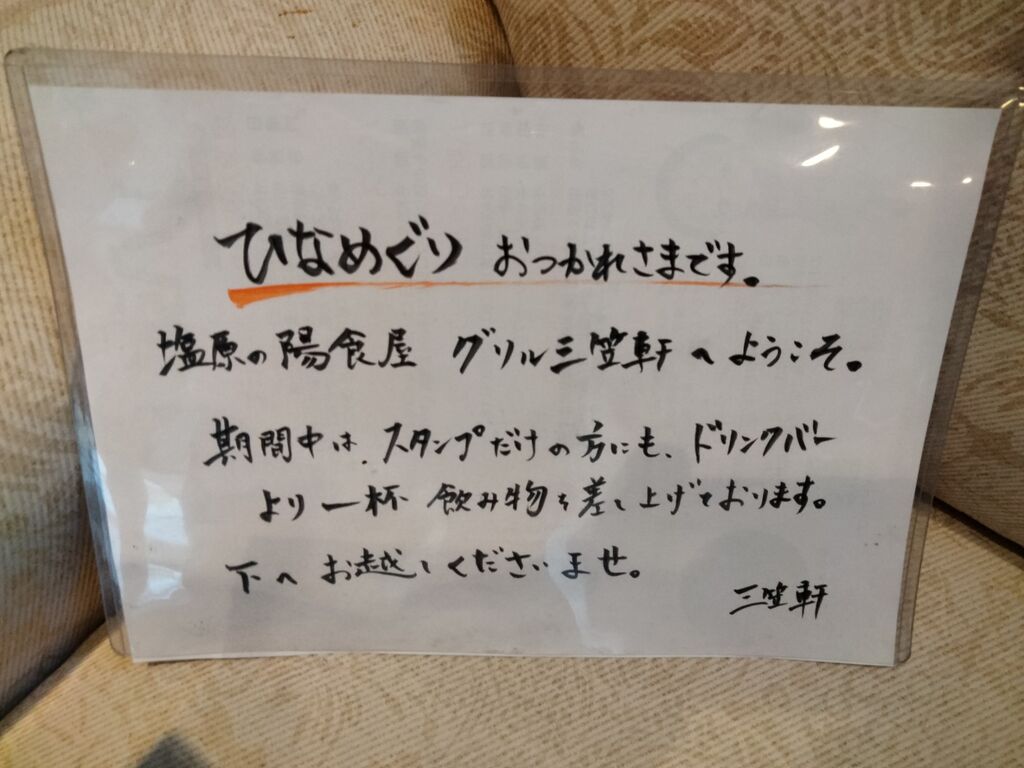 ひなめぐり おつかれさまです。
塩原の陽食屋 グリル三笠軒へようこそ。
期間中は、スタンプだけの方にも、ドリンクバー
より一杯 飲み物を差し上げております。
下へお越しくださいませ。
三笠軒